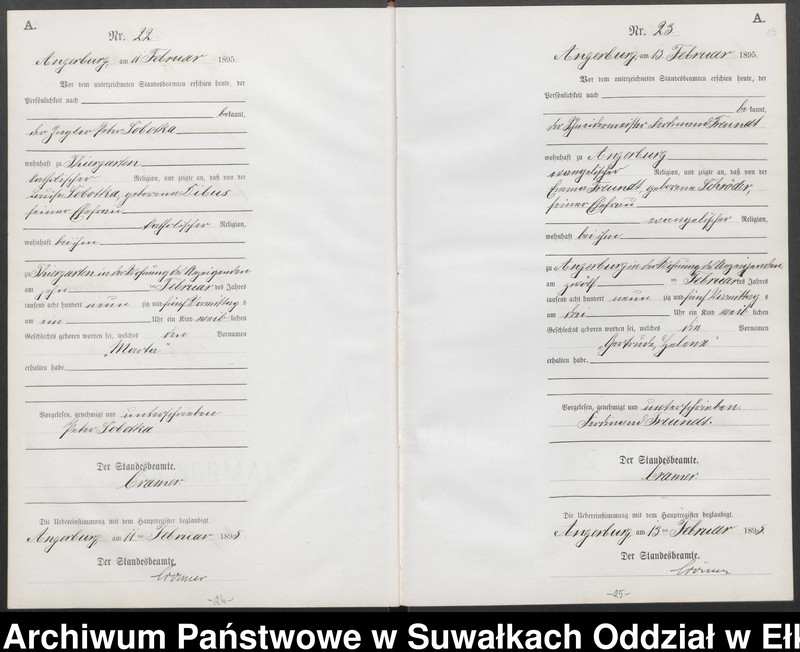 A.
Nr. 22
Angerburg, am 11 Februar 1895.
Vor dem unterzeichneten Standesbeamten erschien heute, der
Persönlichkeit nach
bekannt,
der Peter Sobotka
wohnhaft zu Thiergarten
katholischer Religion, und zeigte an, daß von der
Sobotka, geborene Libus
seiner Ehefrau
katholischer Religion,
wohnhaft bei ihm
zu Thiergarten in der Wohnung des Anzeigenden
am zehn ten Februar des Jahres
tausend acht hundert neun zig und fünf Vormittag s
um ein Uhr ein Kind weib lichen
Geschlechts geboren worden sei, welches den Vornamen
„Marta"
erhalten habe.
Vorgelesen, genehmigt und unterschrieben
Peter Sobotka
Der Standesbeamte.
Cramer
Die Uebereinstimmung mit dem Hauptregister beglaubigt.
Angerburg am 11 ten Februar 1895
Der Standesbeamte.
Cramer
-24-
A.
Nr. 23
Angerburg am 13 Februar 1895.
Vor dem unterzeichneten Standesbeamten erschien heute, der
Persönlichkeit nach
be kannt,
der Schneidermeister Ferdinand Freundt
wohnhaft zu Angerburg
evangelischer Religion, und zeigte an, daß von der
Emma Freundt, geborene Schröder,
seiner Ehefrau
evangelischer Religion,
wohnhaft bei ihm
zu Angerburg in der Wohnung des Anzeigenden
am zwölf ten Februar des Jahres
tausend acht hundert neun zig und fünf Vormittag s
um drei Uhr ein Kind weib lichen
Geschlechts geboren worden sei, welches die Vornamen
„Gertrude, Helene"
erhalten habe.
Vorgelesen, genehmigt und unterschrieben.
Ferdinand Freundt.
Der Standesbeamte.
Cramer.
Die Uebereinstimmung mit dem Hauptregister beglaubigt.
Angerburg am 13 ten Februar 1895
Der Standesbeamte.
Cramer
-25-
Archiwum Państwowe w Suwałkach Oddział w Ełk